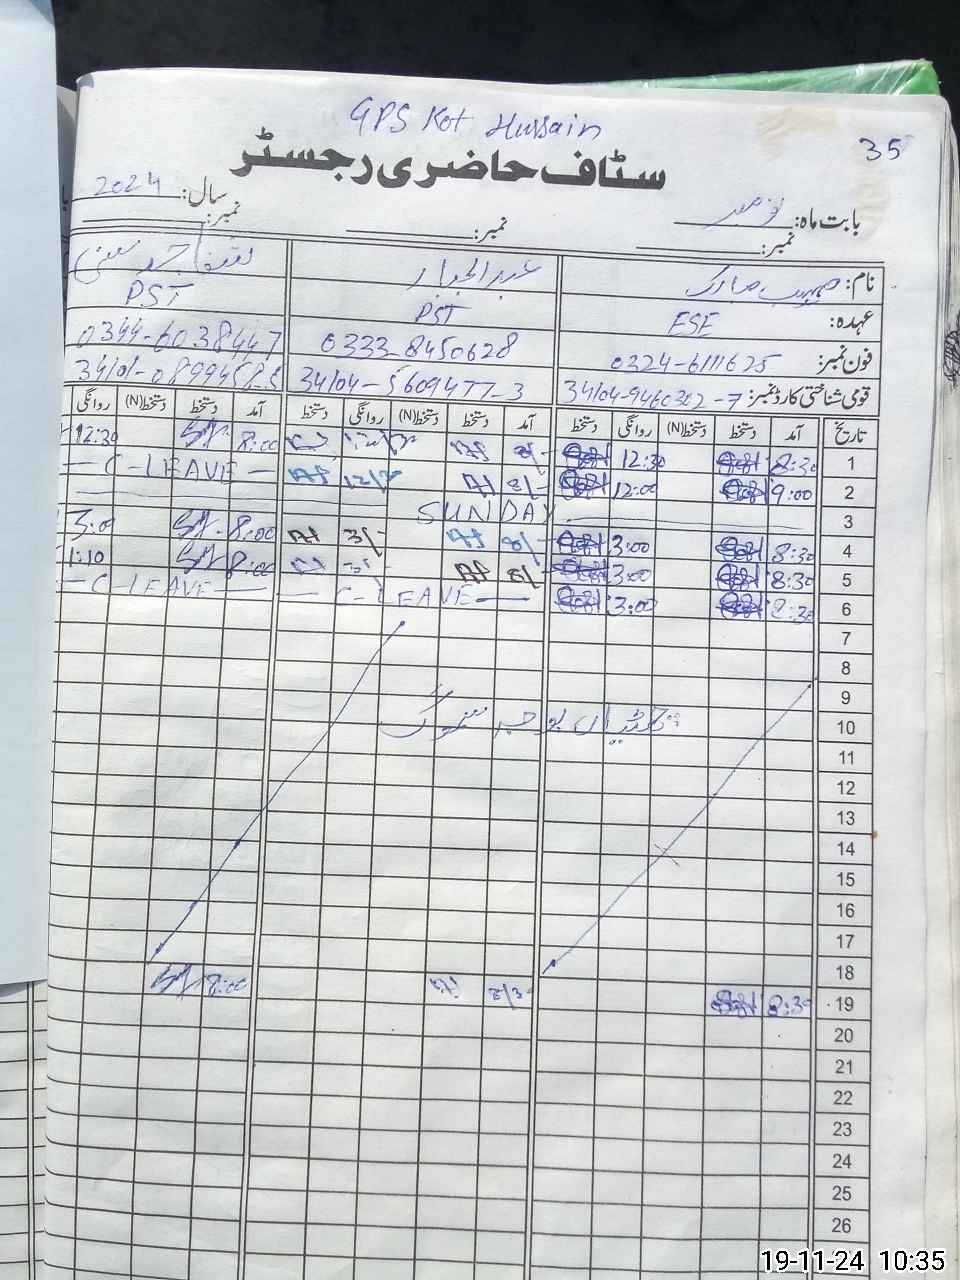 GPS Kot Hussain
35
سٹاف حاضری رجسٹر
بابت ماہ: نومبر سال: 2024
نمبر: نمبر: نمبر:
نام: عبدالجبار
عہدہ: ESE PST PST
فون نمبر: 0324-6111625 0333-8450628 0344-6038447
قومی شناختی کارڈ نمبر: 34104-9460302-7 34104-5609477-3 34101-0899458-5
تاریخ آمد دستخط دستخط(N) روانگی دستخط آمد دستخط دستخط(N) روانگی دستخط آمد دستخط دستخط(N) روانگی
1 8:30 12:30 8/- 8:00 12:30
2 9:00 12:00 8/- C-LEAVE
3 SUNDAY
4 8:30 3:00 8/- 3/- 8:00 3:00
5 8:30 3:00 8/- 8:00 1:10
6 8:30 3:00 C-LEAVE C-LEAVE
7
8
9
10 بوجہ سموگ
11
12
13
14
15
16
17
18
19 8:30 8:00
20
21
22
23
24
25
26
19-11-24 10:35